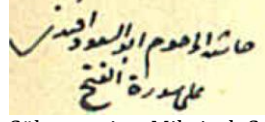 حاشية المرحوم ابو السعود افندى
على سورة الفتح